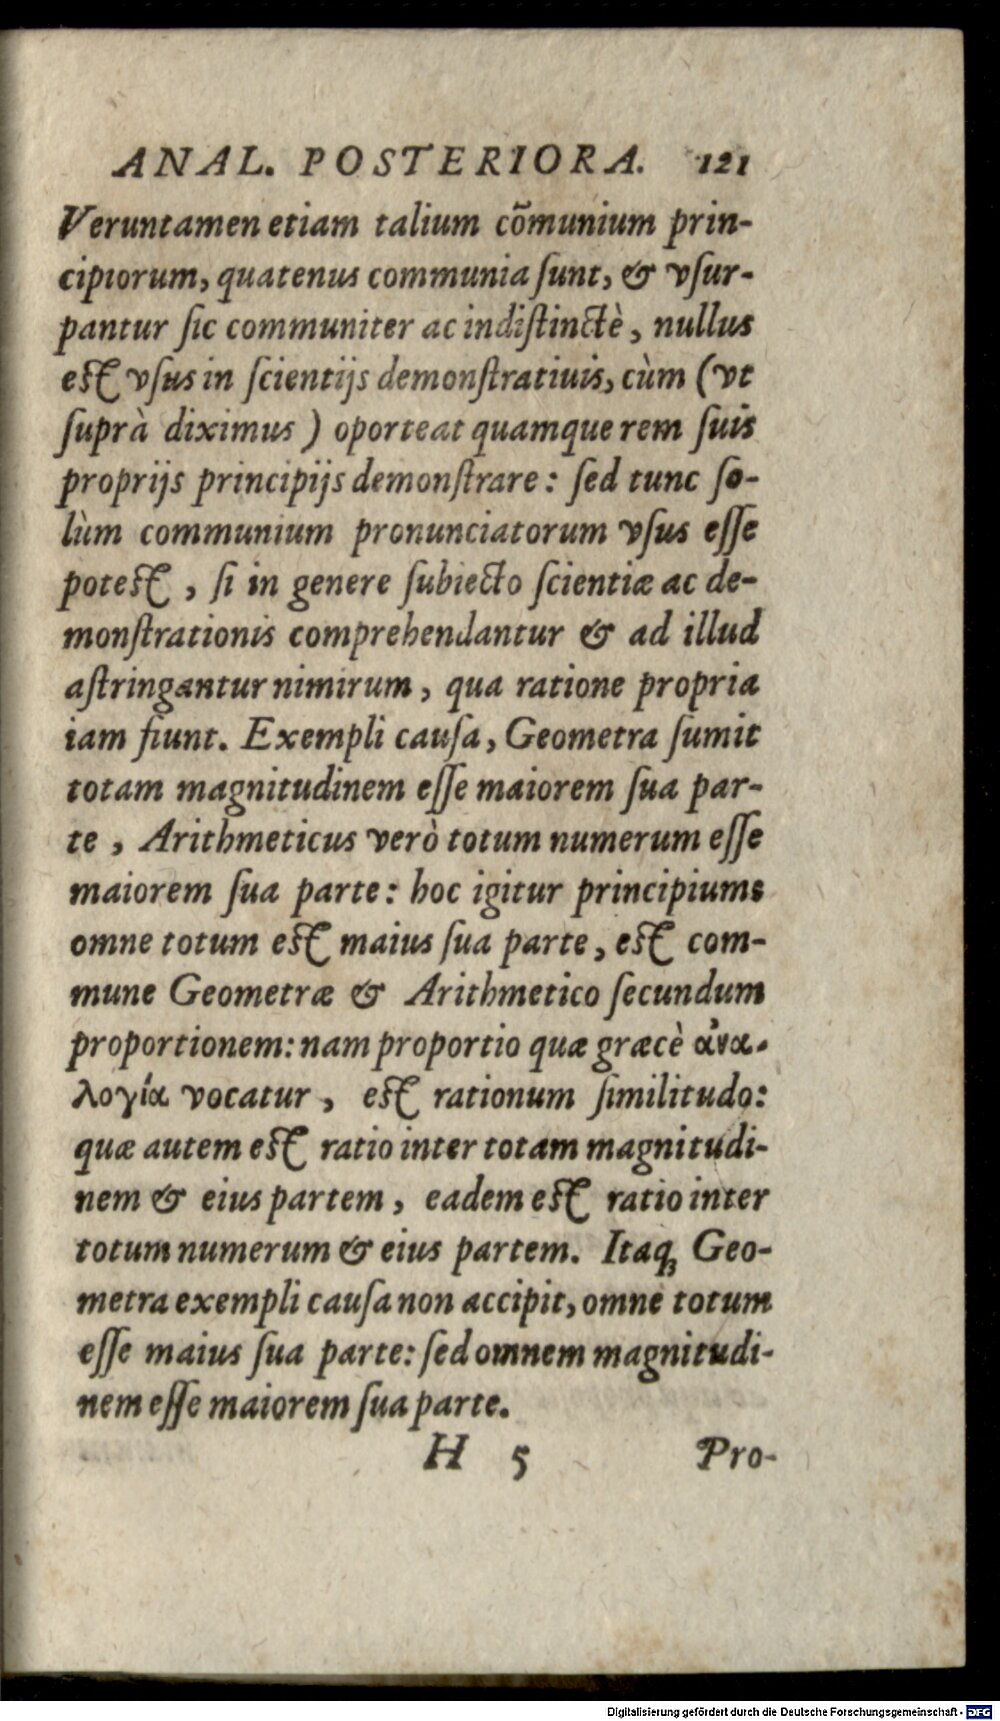 ANAL. POSTERIORA. 121
Veruntamen etiam talium cōmunium prin-
cipiorum, quatenus communia ſunt, & vſur-
pantur ſic communiter ac indiſtinctè, nullus
eſt vſus in ſcientijs demonſtratiuis, cùm (vt
ſuprà diximus) oporteat quamque rem ſuis
proprijs principijs demonſtrare: ſed tunc ſo-
lùm communium pronunciatorum vſus eſſe
poteſt, ſi in genere ſubiecto ſcientiæ ac de-
monſtrationis comprehendantur & ad illud
aſtringantur nimirum, qua ratione propria
iam fiunt. Exempli cauſa, Geometra ſumit
totam magnitudinem eſſe maiorem ſua par-
te, Arithmeticus verò totum numerum eſſe
maiorem ſua parte: hoc igitur principium
omne totum eſt maius ſua parte, eſt com-
mune Geometræ & Arithmetico ſecundum
proportionem: nam proportio quæ græcè ἀνα-
λογία vocatur, eſt rationum ſimilitudo:
quæ autem eſt ratio inter totam magnitudi-
nem & eius partem, eadem eſt ratio inter
totum numerum & eius partem. Itaqꝫ Geo-
metra exempli cauſa non accipit, omne totum
eſſe maius ſua parte: ſed omnem magnitudi-
nem eſſe maiorem ſua parte.
H 5 Pro-
Digitalisierung gefördert durch die Deutsche Forschungsgemeinschaft - DFG